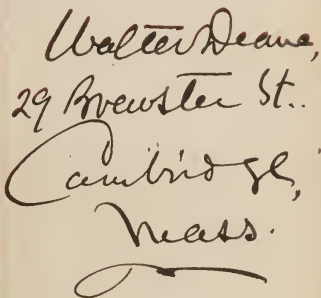 Walter Deane,
29 Brewster St..
Cambridge,
Mass.